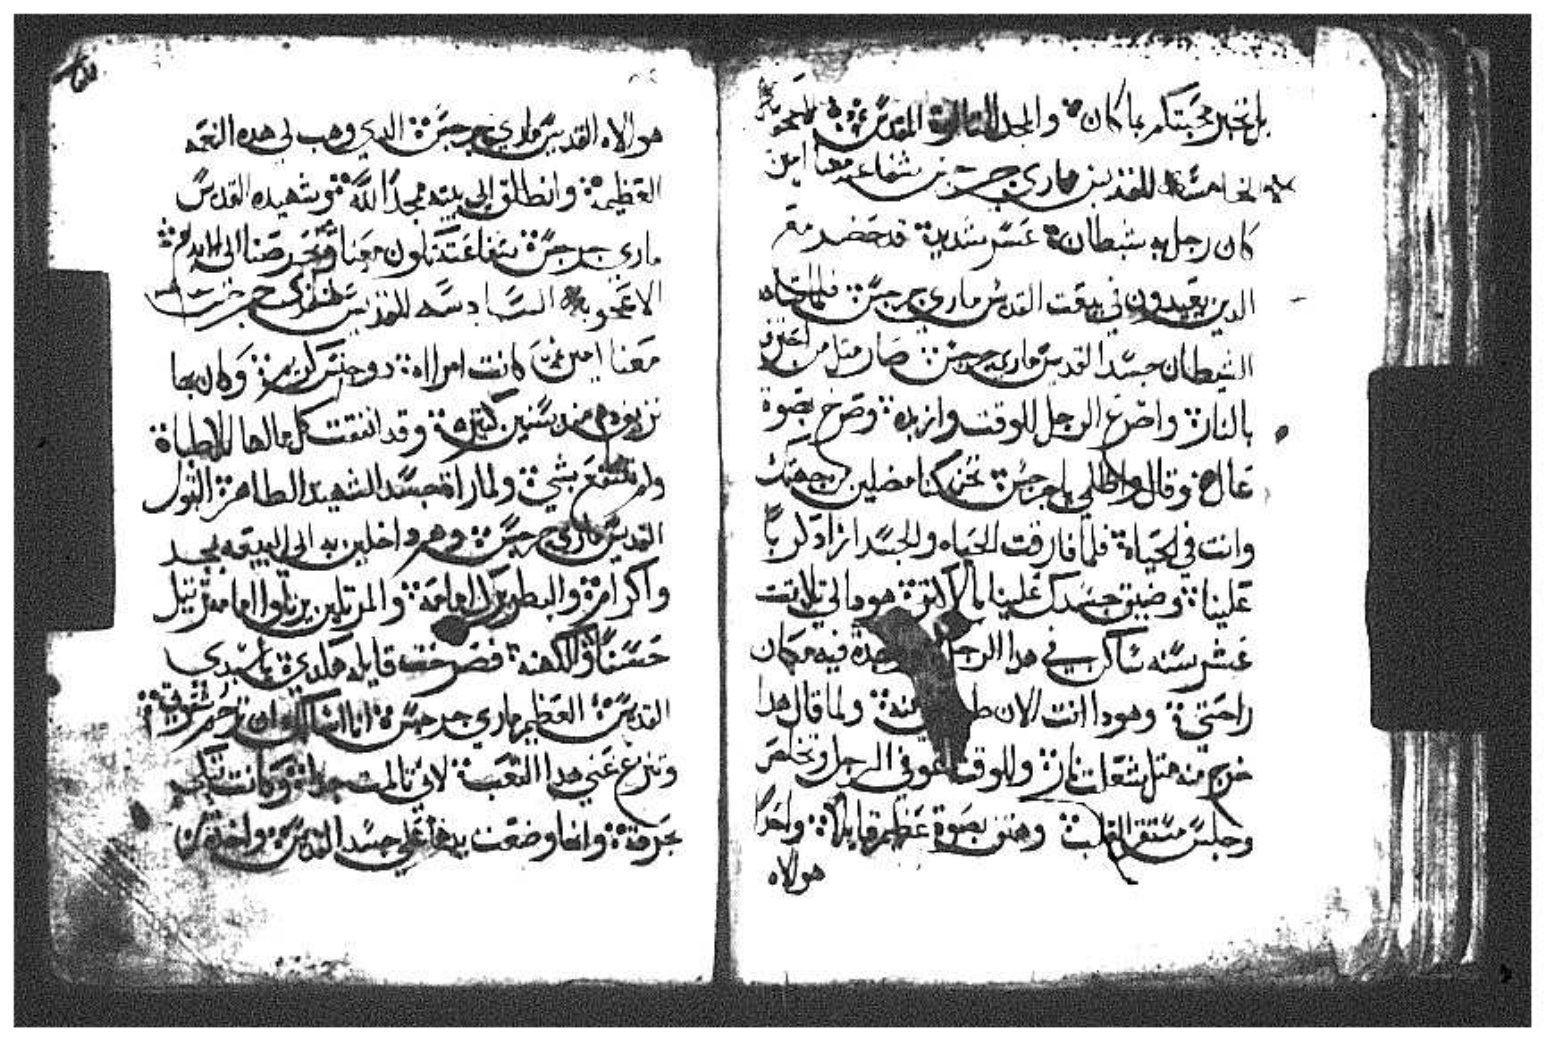 بل نخبر محبتكم بما كان والمجد للتالوت المقدس الاعجوبه
الخامسه للقديس ماري جرجس شفاعته معنا امين
كان رجل به شيطان عسر شديد قد حضر مع
الدين يعيدون في بيعت القديس ماري جرجس فلما
الشيطان جسد القديس ماري جرجس صار متل من احترق
بالنار واصرع الرجل للوقت وازبده وصرخ بصوة
عال وقال يا جرجس نحن كنا مضلين جهتك
وانت في الحياة فلما فارقت الحياه والجسد ازاد كربا
علينا وضيق جسدك علينا هودا لي تلاتت
عشر سنه ساكن في هدا الرجل فيه مكان
راحتي وهودا انت الان منه ولما قال هدا
خرج منه متل شعلت نار وللوقت عوفي الرجل وتخلص
وجلس مستقر القلب وهتف بصوة عظيم قايلا واحد
هو الاه
هو الاه القديس ماري جرجس الدي وهب لي هده النعمه
العظيمة وانطلق الي بيته ممجدا لله وشهيده القديس
ماري جرجس شفاعته تكون معنا وتحرصنا الى الابد
الاعجوبه السادسه للقديس جرجس
معنا امين كانت امراه دو جنس كريم وكان بها
نزيف دم مند سنين كتيره وقد انفقت كل مالها للاطباة
ولم تنتفع بشي ولما راة جسد الشهيد الطاهر البتول
القديس ماري جرجس وهم داخلين به الى البيعه بمجد
واكرامة والبطريرك امامه والمرتلين يرتلوا امامه ترتيل
حسنا والكهنه فصرخت قايله هكدي يا سيدي
القديس العظيم ماري جرجس انا اسالك ان ترحم شقوتي
وتنزع عني هدا التعب لاني تالمت جدا وكانت تبكي
بحرقة وانها وضعت يدها علي جسد القديس واخدة